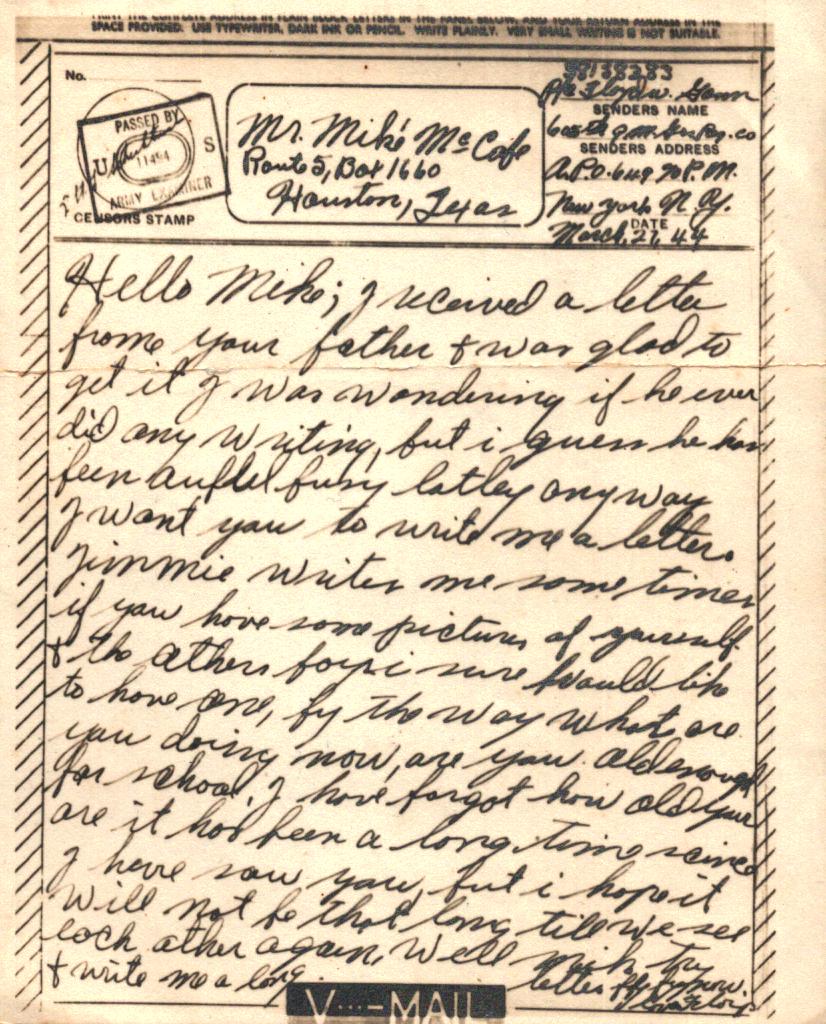 PRINT THE COMPLETE ADDRESS IN PLAIN BLOCK LETTERS IN THE PANEL BELOW, AND YOUR RETURN ADDRESS IN THE
SPACE PROVIDED. USE TYPEWRITER, DARK INK OR PENCIL. WRITE PLAINLY. VERY SMALL WRITING IS NOT SUITABLE.
No.
PASSED BY
U S
11494
ARMY EXAMINER
CENSORS STAMP
Mr. Mike McCafe
Route 5, Box 1660
Houston, Texas
38138283
Pfc Floyd W.
SENDERS NAME
605th Q.M. Co
SENDERS ADDRESS
A.P.O. 649 % P.M.
New York N.Y.
DATE
March, 27, 44
Hello Mike; I received a letter
frome your father & was glad to
get it I was wondering if he ever
did any writing, but i guess he has
been aufel busy latley anyway
I want you to write me a letter.
Jimmie writes me some times
if you have some pictures of yourself
& the others boys i sure would like
to have one, by the way what are
you doing now, are you old enough
for school, I have forgot how old your
are it has been a long time scince
I have saw you, but i hope it
will not be that long till we see
each other again, Well mick try
& write me a long
letter bye for now.
love Floyd
V···—MAIL